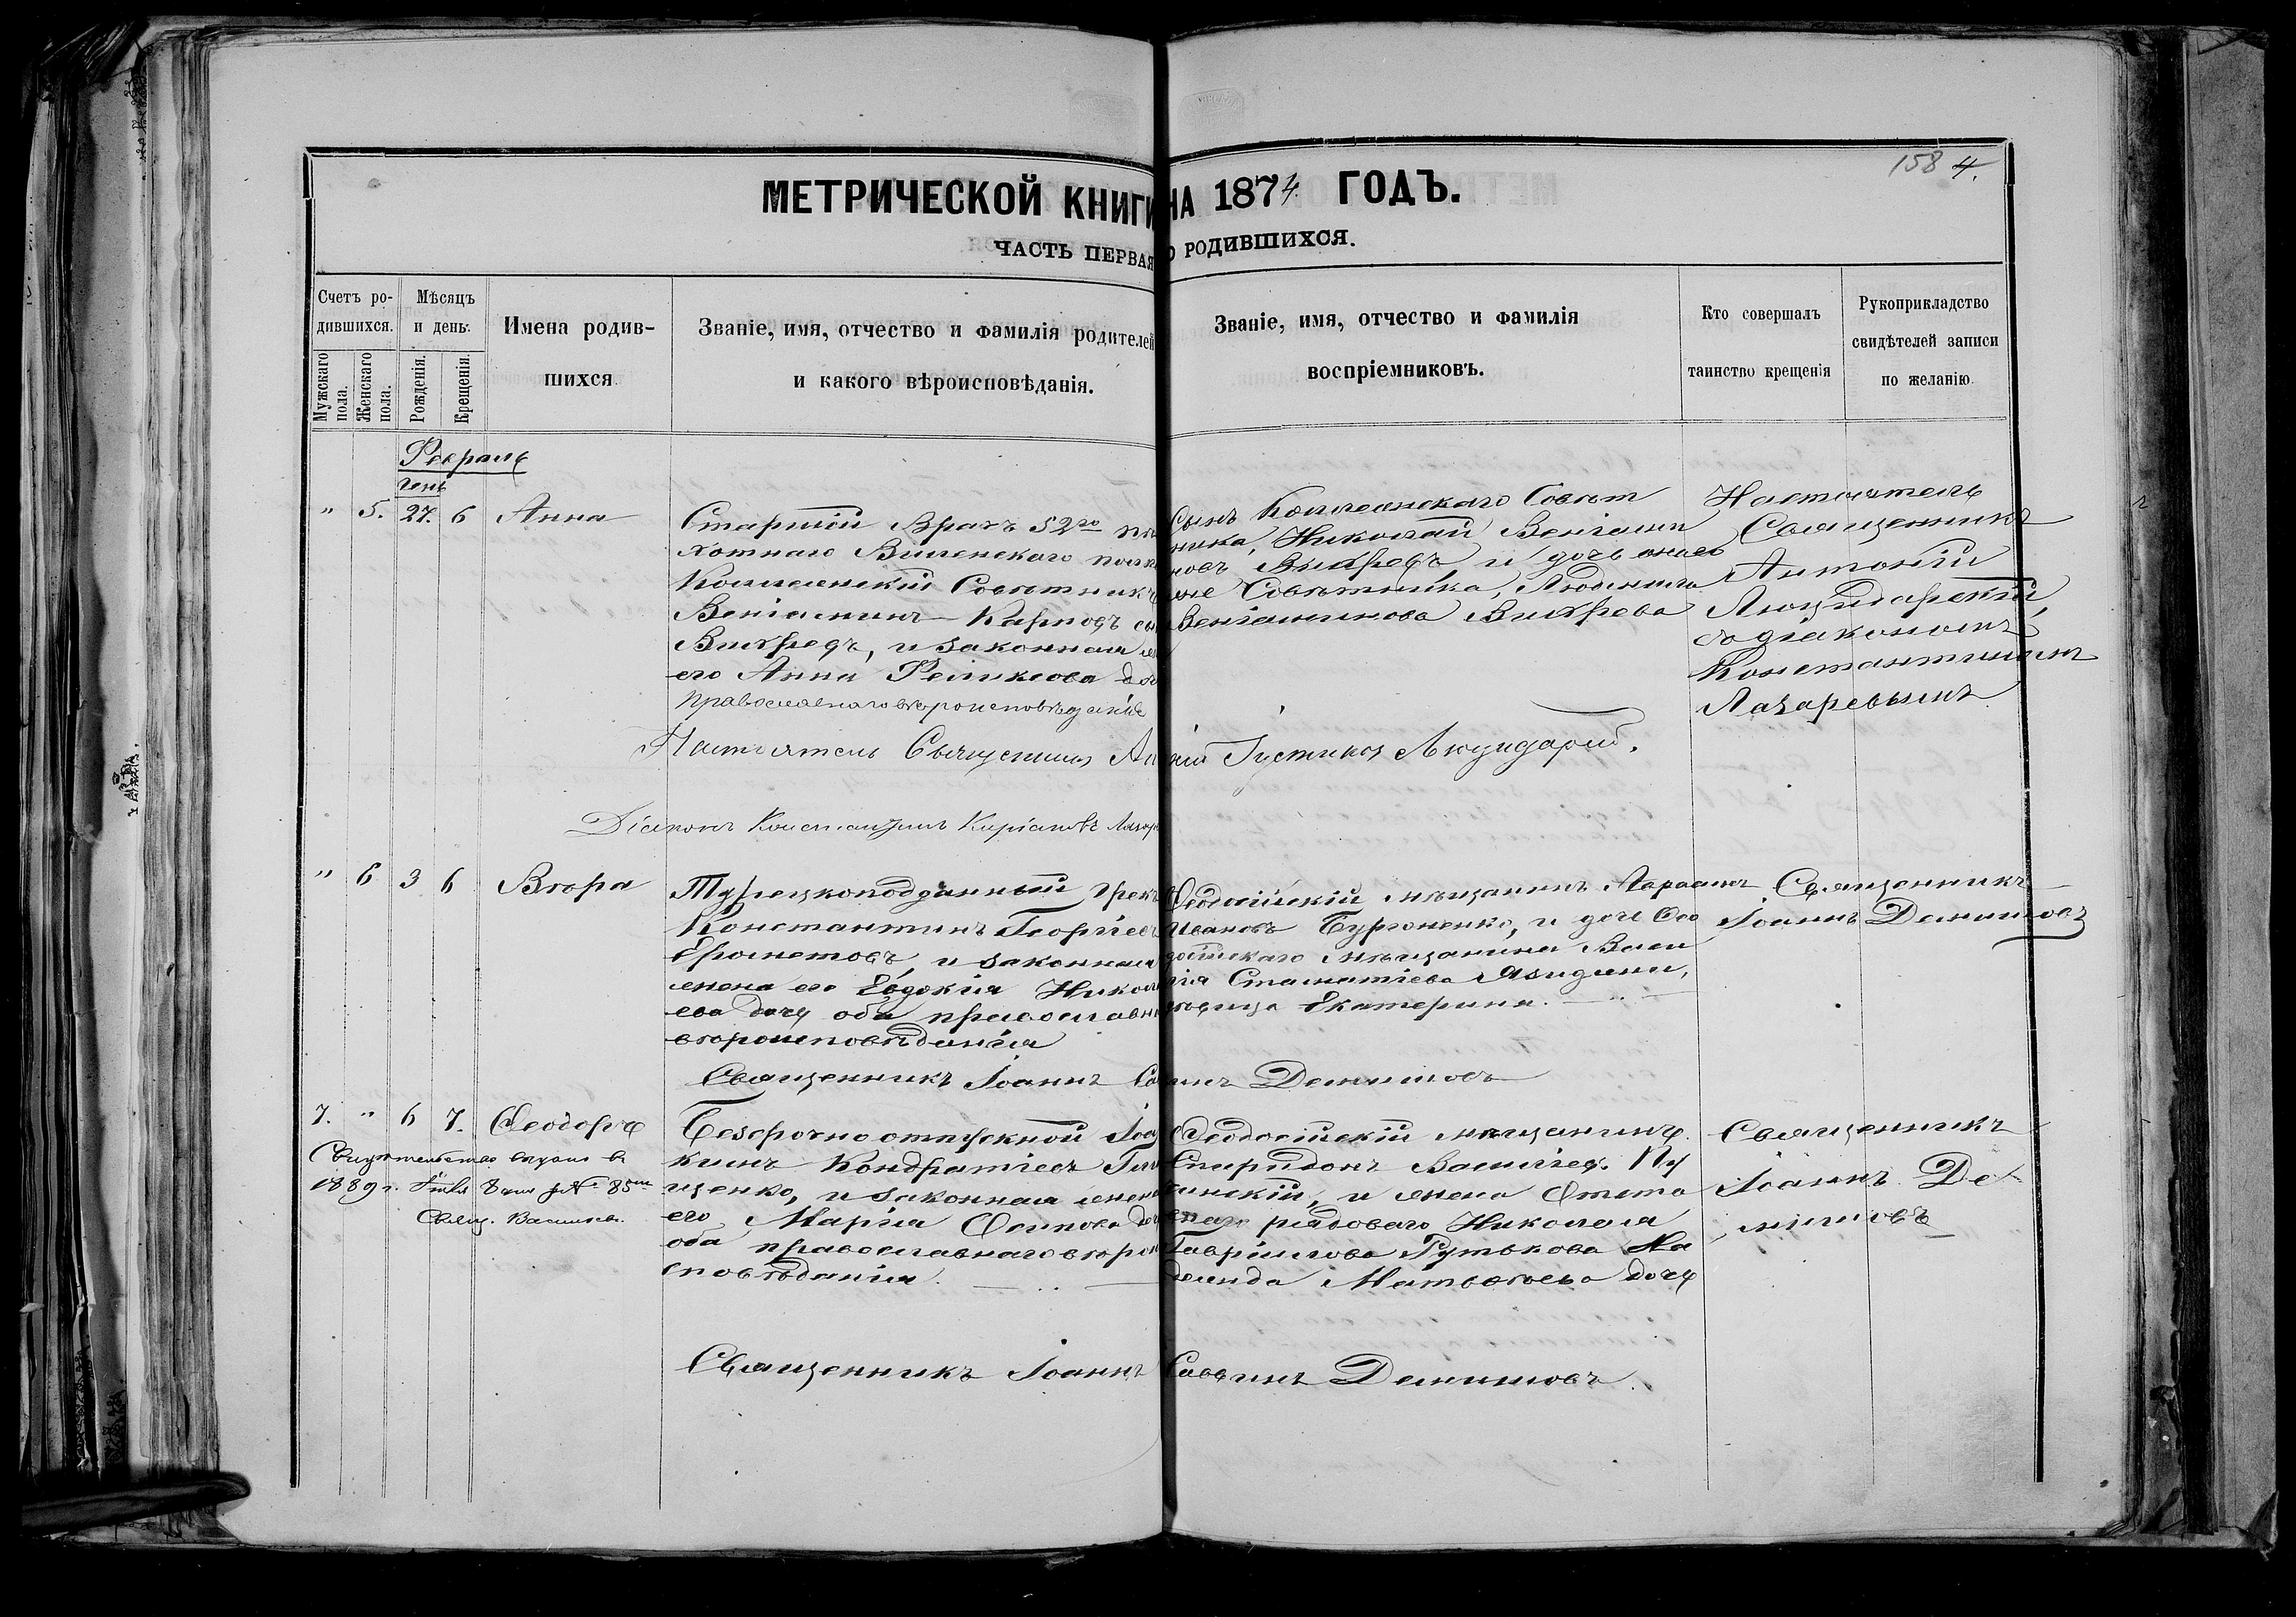 158 4.
МЕТРИЧЕСКОЙ КНИГИ НА 1874 ГОДЪ.
ЧАСТЬ ПЕРВАЯ О РОДИВШИХСЯ.
Счетъ ро-
дившихся.
Мужскаго пола.
Женскаго пола.
Мѣсяцъ
и день.
Рожденія.
Крещенія.
Имена родив-
шихся
Званіе, имя, отчество и фамилія родителей
и какого вѣроисповѣданія.
Званіе, имя, отчество и фамилія
воспріемниковъ.
Кто совершалъ
таинство крещенія
Рукоприкладство
свидѣтелей записи
по желанію.
Февраль
" 5. 27. 6 Анна
Старшій Врачъ 52го пѣ
хотнаго Виленскаго полка
Коллежскій Совѣтникъ
Веніаминъ Карповъ
и законная
его Анна Феликсова
православнаго вѣроисповѣданія
Сынъ Коллежскаго Совѣт
ника, Николай Веніами
новъ и дочь онаго
же Совѣтника, Людмила
Веніаминова
Настоятель
Священникъ
Антоній
Люцидарскій,
съ діакономъ
Константиномъ
Лазаревымъ
Настоятель Священникъ Люцидарскій.
Діаконъ Константинъ
" 6 3 6 Вѣра
Турецкоподданный грекъ
Константинъ Георгіевъ
и законная
жена его Евдокія Никола
ева дочь оба православна
вѣроисповѣданія
Ѳеодосійскій мѣщанинъ
Ивановъ и дочь Ѳео
досійскаго мѣщанина Васи
лія Стаматіева
дѣвица Екатерина.
Священникъ
Іоаннъ Демишовъ
Священникъ Іоаннъ Саввинъ Демишовъ
7. " 6 7. Ѳеодоръ
Свидѣтельство выдано въ
1889 г. 8 № 85
Свящ.
Безсрочноотпускной Іоа
кимъ Кондратіевъ
щенко, и законная жена
его Марія Осипова доч
оба православнаго вѣрои
сповѣданія.
Ѳеодосійскій мѣщанинъ
Спиридонъ Васильев.
и жена Отста
внаго рядоваго Николая
Гавріилова Рутькова На
дежда Матвѣева дочь
Священникъ
Іоаннъ Де
мишовъ
Священникъ Іоаннъ Саввинъ Демишовъ.